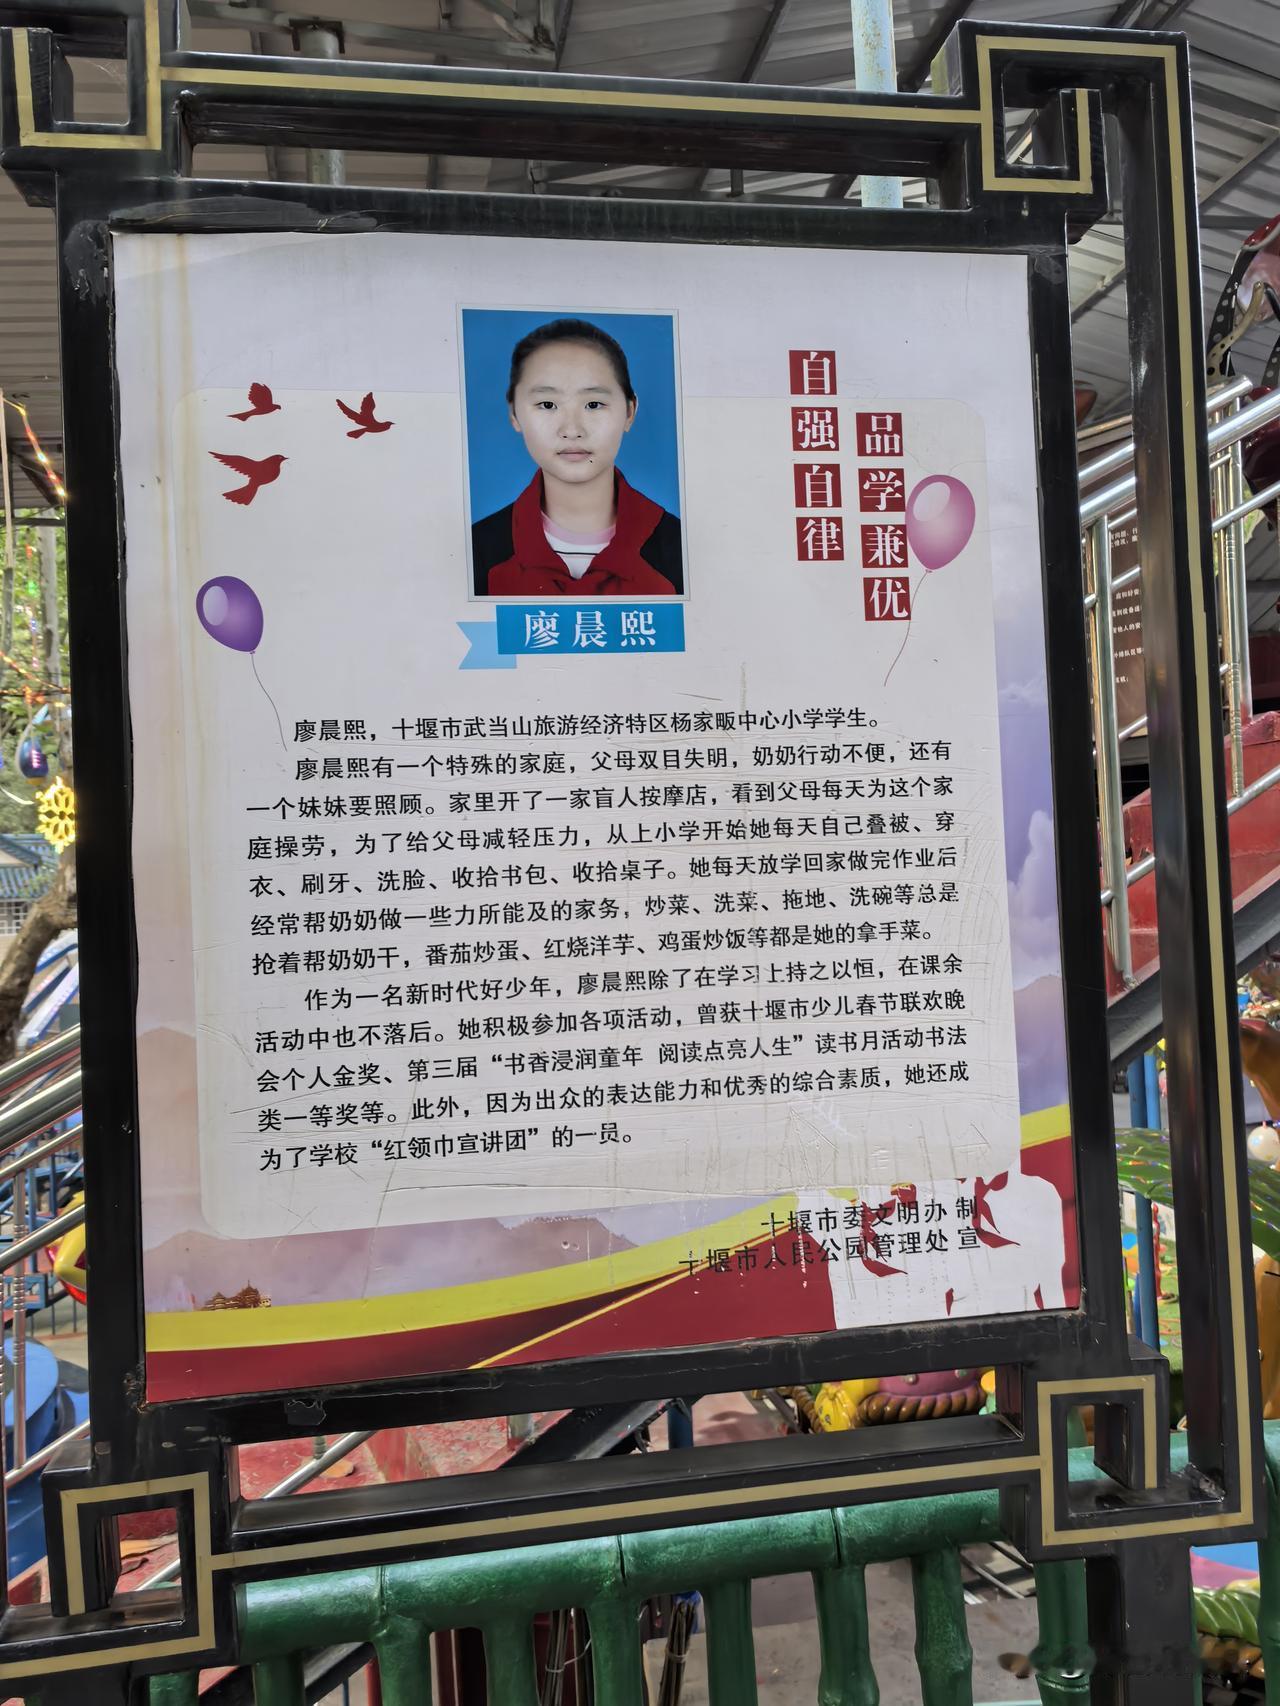 自强自律
品学兼优
廖晨熙
廖晨熙，十堰市武当山旅游经济特区杨家畈中心小学学生。
廖晨熙有一个特殊的家庭，父母双目失明，奶奶行动不便，还有
一个妹妹要照顾。家里开了一家盲人按摩店，看到父母每天为这个家
庭操劳，为了给父母减轻压力，从上小学开始她每天自己叠被、穿
衣、刷牙、洗脸、收拾书包、收拾桌子。她每天放学回家做完作业后
经常帮奶奶做一些力所能及的家务，炒菜、洗菜、拖地、洗碗等总是
抢着帮奶奶干，番茄炒蛋、红烧洋芋、鸡蛋炒饭等都是她的拿手菜。
作为一名新时代好少年，廖晨熙除了在学习上持之以恒，在课余
活动中也不落后。她积极参加各项活动，曾获十堰市少儿春节联欢晚
会个人金奖、第三届“书香浸润童年 阅读点亮人生”读书月活动书法
类一等奖等。此外，因为出众的表达能力和优秀的综合素质，她还成
为了学校“红领巾宣讲团”的一员。
十堰市委文明办 制
十堰市人民公园管理处 宣